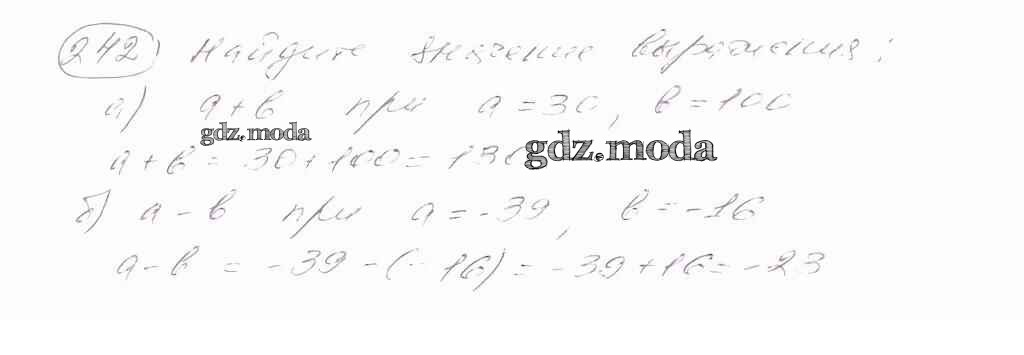 242) Найдите значение выражения:
а) а+в при а=30, в=100
gdz.moda
а+в = 30+100=130
gdz.moda
б) а-в при а=-39, в=-16
а-в = -39-(-16)=-39+16=-23